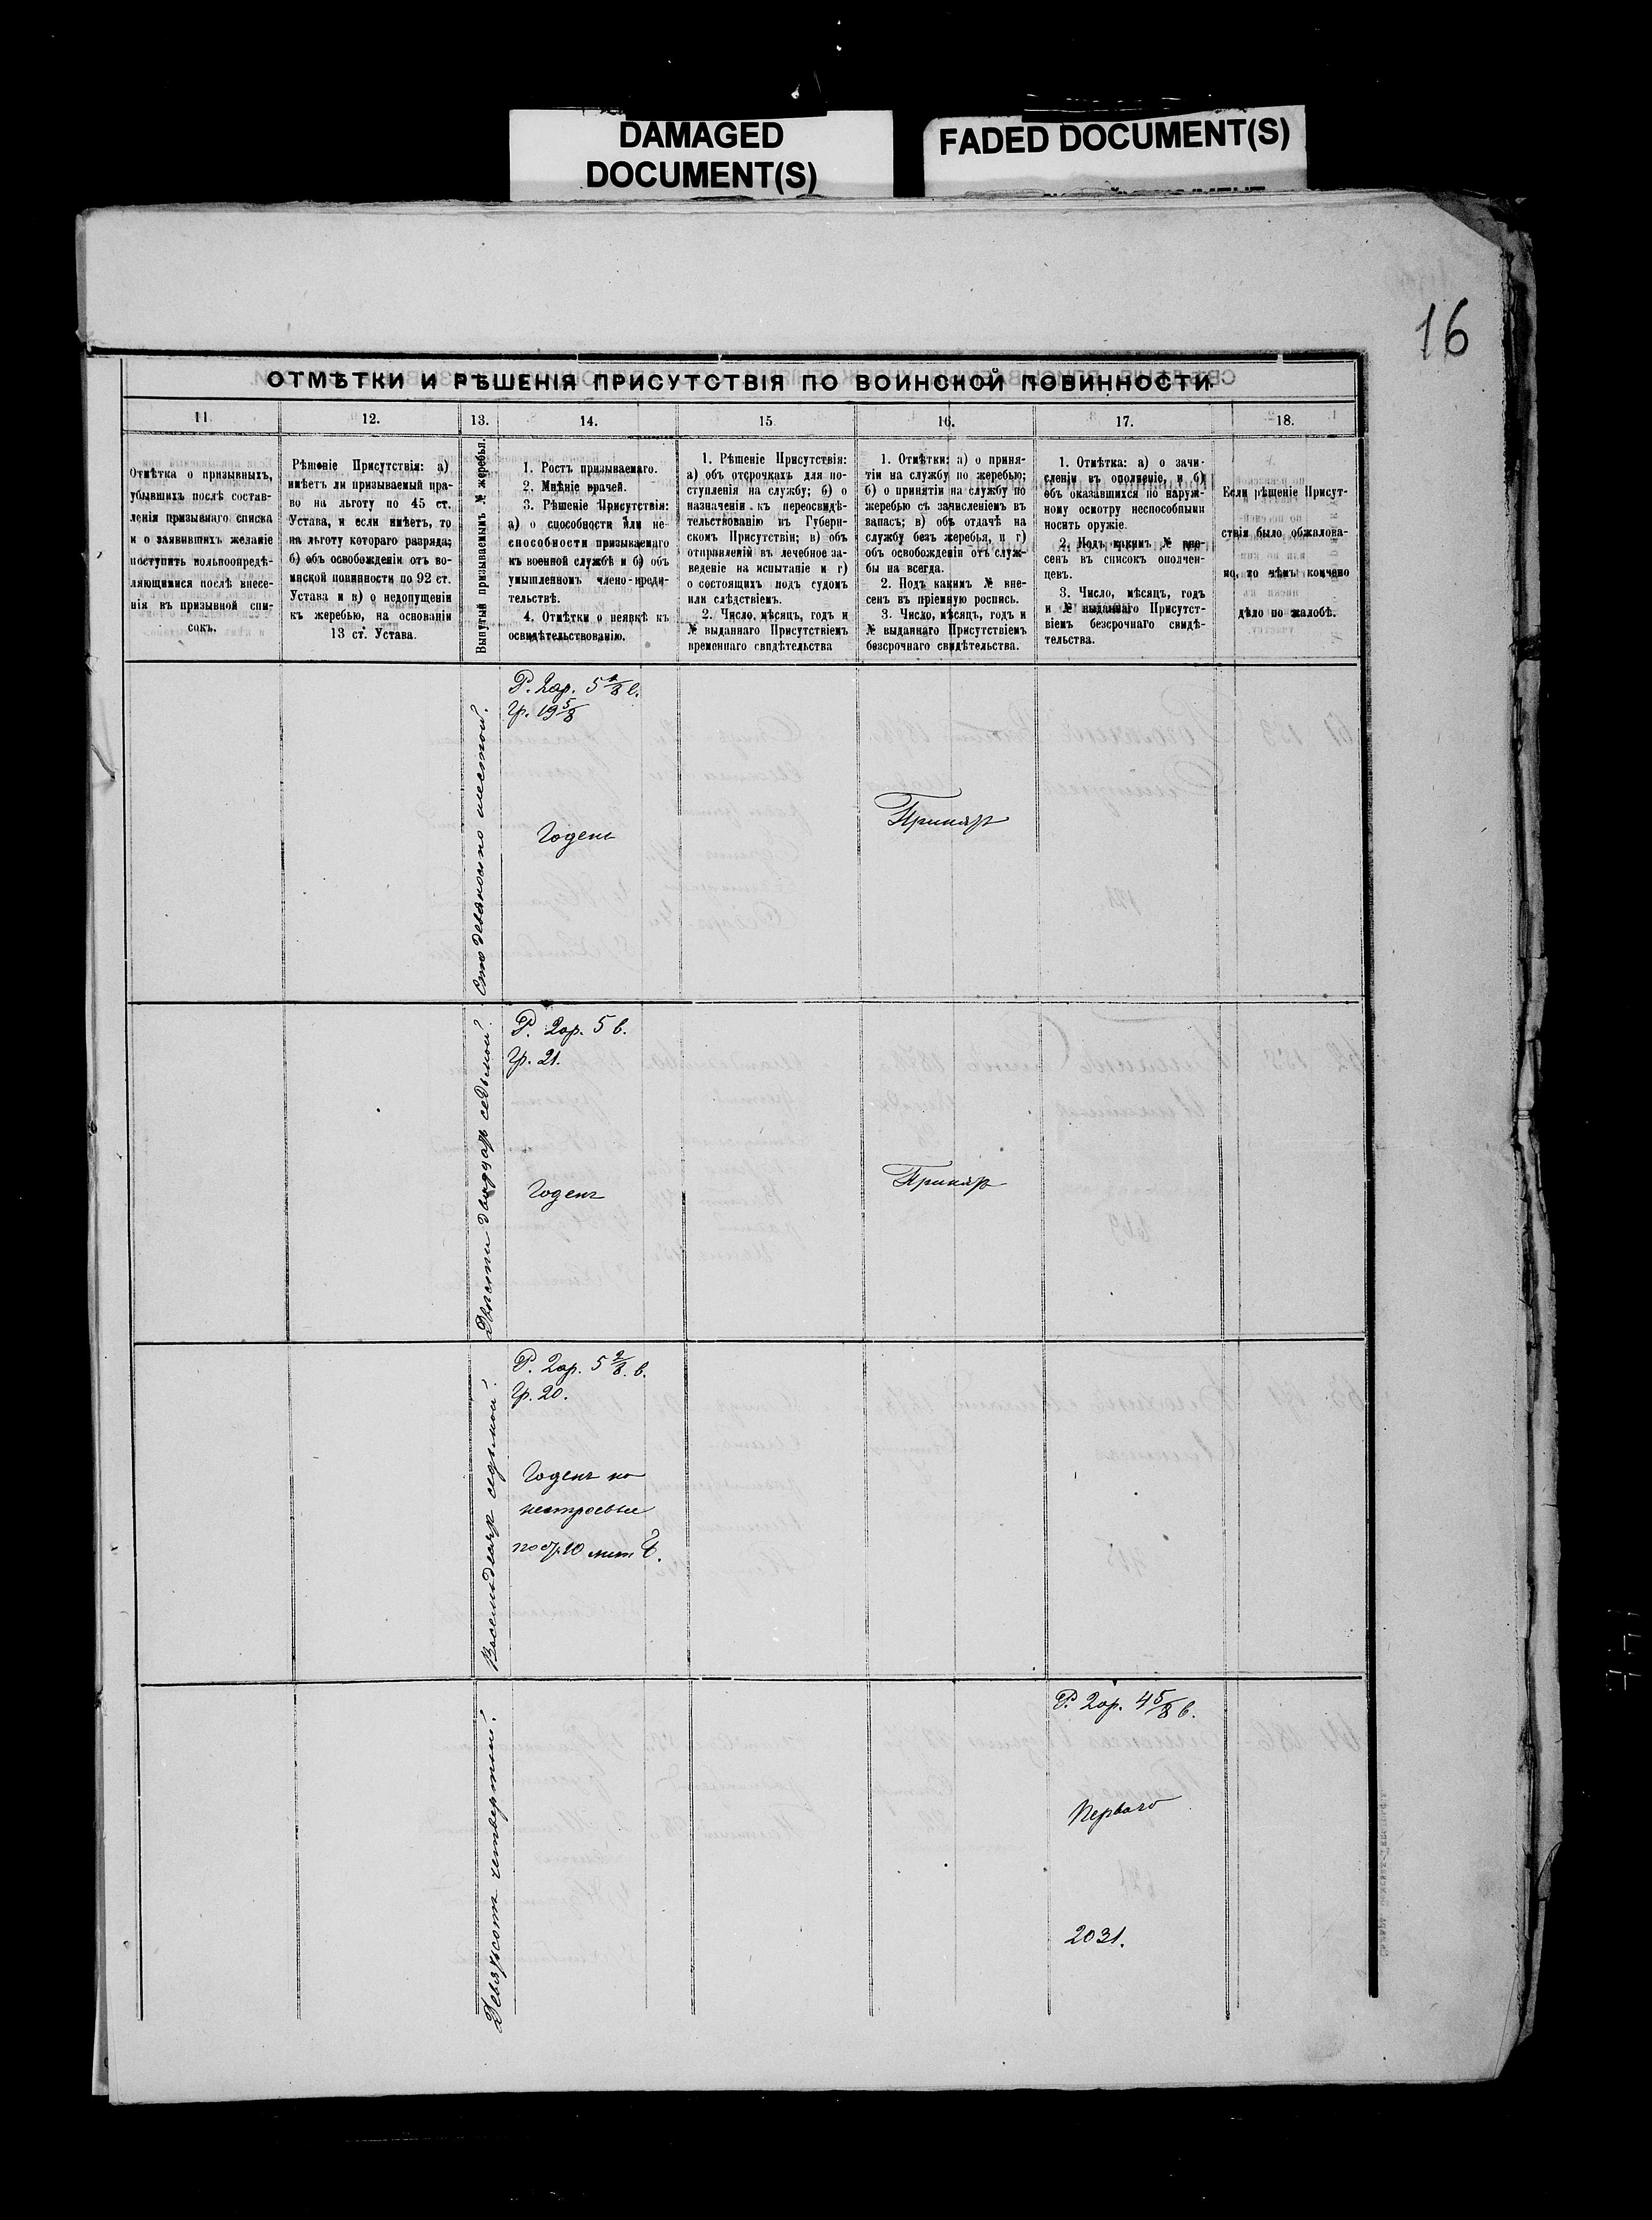 DAMAGED
DOCUMENT(S)
FADED DOCUMENT(S)
16
ОТМѢТКИ И РѢШЕНІЯ ПРИСУТСТВІЯ ПО ВОИНСКОЙ ПОВИННОСТИ.
11.
12.
13.
14.
15
16.
17.
18.
Отмѣтка о призывныхъ,
убывшихъ послѣ состав-
ленія призывнаго списка
и о заявившихъ желаніе
поступить вольноопредѣ-
ляющимися послѣ внесе-
нія въ призывной спи-
сокъ.
Рѣшеніе Присутствія: а)
имѣетъ ли призываемый пра-
во на льготу по 45 ст.
Устава, и если имѣетъ, то
на льготу котораго разряда;
б) объ освобожденіи отъ во-
инской повинности по 92 ст.
Устава и в) о недопущеніи
къ жеребью, на основаніи
13 ст. Устава.
Вынутый призываемымъ № жеребья.
1. Ростъ призываемаго.
2. Мнѣніе врачей.
3. Рѣшеніе Присутствія:
а) о способности или не-
способности призываемаго
къ военной службѣ и б) объ
умышленномъ члено-вреди-
тельствѣ.
4. Отмѣтки о неявкѣ къ
освидѣтельствованію.
1. Рѣшеніе Присутствія:
а) объ отсрочкахъ для по-
ступленія на службу; б) о
назначеніи къ переосвидѣ-
тельствованію въ Губерн-
скомъ Присутствіи; в) объ
отправленіи въ лечебное за-
веденіе на испытаніе и г)
о состоящихъ подъ судомъ
или слѣдствіемъ.
2. Число, мѣсяцъ, годъ и
№ выданнаго Присутствіемъ
временнаго свидѣтельства
1. Отмѣтки: а) о приня-
тіи на службу по жеребью;
б) о принятіи на службу по
жеребью съ зачисленіемъ въ
запасъ; в) объ отдачѣ на
службу безъ жеребья, и г)
объ освобожденіи отъ служ-
бы на всегда.
2. Подъ какимъ № вне-
сенъ въ пріемную роспись.
3. Число, мѣсяцъ, годъ и
№ выданнаго Присутствіемъ
безсрочнаго свидѣтельства.
1. Отмѣтка: а) о зачи-
сленіи въ ополченіе, и б)
объ оказавшихся по наруж-
ному осмотру неспособными
носить оружіе.
2. Подъ какимъ № вне-
сенъ въ списокъ ополчен-
цевъ.
3. Число, мѣсяцъ, годъ
и № выданнаго Присутст-
віемъ безсрочнаго свидѣ-
тельства.
Если рѣшеніе Присут-
ствія было обжалова-
но, то чѣмъ кончено
дѣло по жалобѣ.
Сто девяносто шестой.
Р. 2ар. 5 /8 в.
Гр. 19 5/8
Годенъ
Принятъ
Двѣсти двадцать седьмой.
Р. 2ар. 5 в.
Гр. 21.
Годенъ
Принятъ
Восемьдесятъ седьмой.
Р. 2ар. 5 2/8 в.
Гр. 20.
Годенъ на
нестроевые
20 лит
Девятьсотъ четвертый.
Р. 2ар. 4 5/8 в.
Перваго
2031.